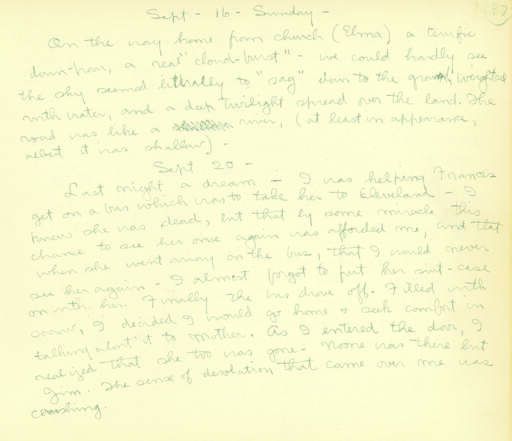 Sept - 16 - Sunday -
On the way home from church (Elma) a terrific
down-pour, a real "cloud-burst" - we could hardly see
the sky seemed litterally to "sag" down to the ground, weighted
with water, and a deep twilight spread over the land. The
road was like a river, (at least in appearance,
albeit it was shallow) -
Sept 20 -
Last night a dream - I was helping Frances
get on a bus which was to take her to Cleveland - I
knew she was dead, but that by some miracle this
chance to see her once again was afforded me, and that
when she went away on the bus, that I would never
see her again - I almost forgot to put her suit-case
on with her. Finally the bus drove off. Filled with
sorrow, I decided I would go home & seek comfort in
talking about it to mother. As I entered the door, I
realized that she too was gone - no one was there but
Jim. The sense of desolation that came over me was
crushing.